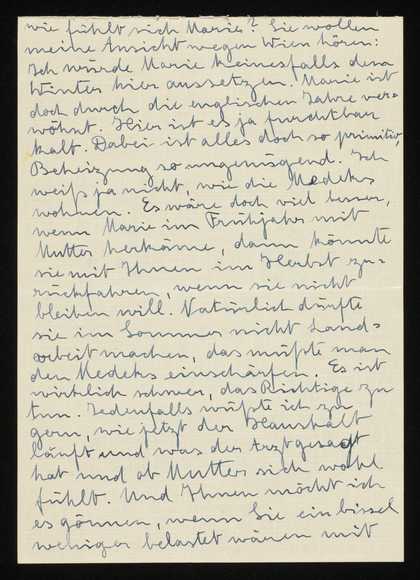 wie fühlt sich Marie? Sie wollen
meine Ansicht wegen Wien hören:
Ich würde Marie keinesfalls dem
Winter hier aussetzen. Marie ist
doch durch die englischen Jahre ver-
wöhnt. Hier ist es ja furchtbar
kalt. Dabei ist alles doch so primitiv,
Beheizung so ungenügend. Ich
weiß ja nicht, wie die Medeks
wohnen. Es wäre doch viel besser,
wenn Marie im Frühjahr mit
Mutter herkäme, dann könnte
sie mit Ihnen im Herbst zu-
rückfahren, wenn sie nicht
bleiben will. Natürlich dürfte
sie im Sommer nicht Land-
arbeit machen, das müßte man
den Medeks einschärfen. Es ist
wirklich schwer, das Richtige zu
tun. Jedenfalls wüßte ich zu
gern, wie jetzt der Haushalt
läuft und was der Arzt gesagt
hat und ob Mutter sich wohl
fühlt. Und Ihnen möcht ich
es gönnen, wenn Sie ein bissel
weniger belastet wären mit